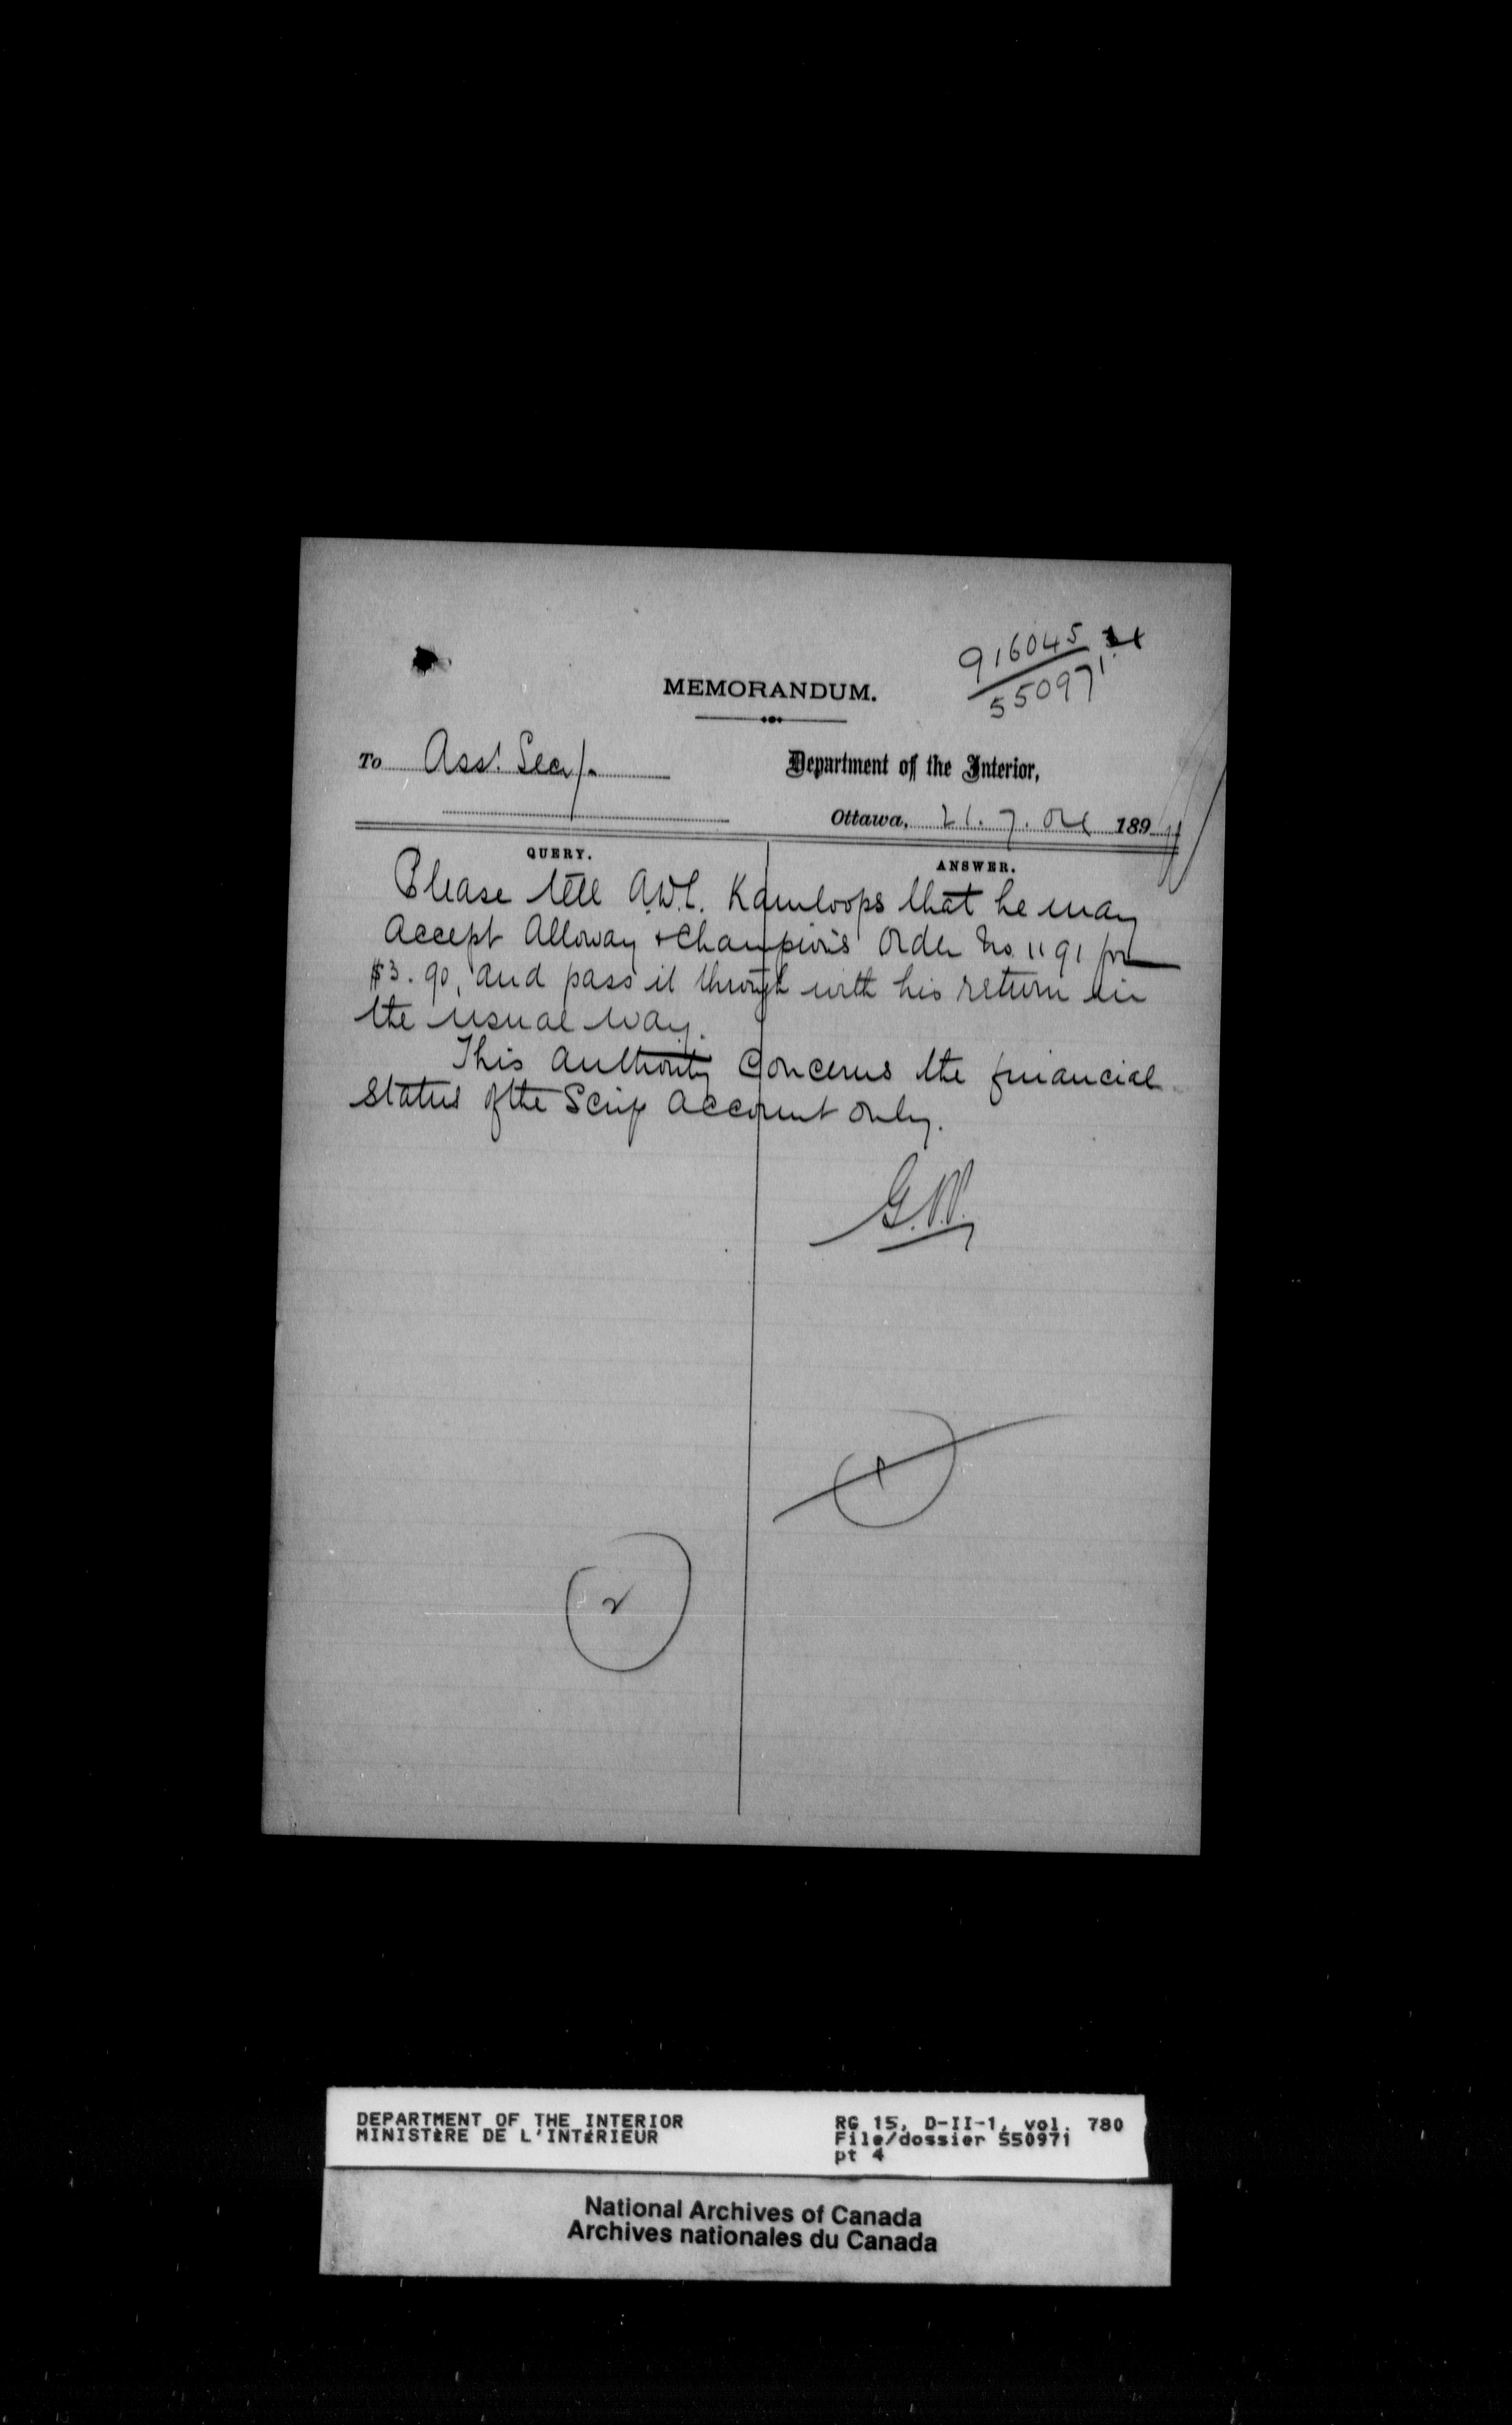 916045
550971
MEMORANDUM.
To Asst. Secy.
Department of the Interior,
Ottawa, 21. 7. 04 189
QUERY.
ANSWER.
Please tell A.D.L. Kamloops that he may
Accept Alloway & Champion's Order No. 1191 for
$3.90, and pass it through with his return in
the usual way.
This authority concerns the financial
Status of the Scrip Account only.
G.W.
1
2
DEPARTMENT OF THE INTERIOR
MINISTÈRE DE L'INTÉRIEUR
RG 15, D-II-1, vol. 780
File/dossier 550971
pt 4
National Archives of Canada
Archives nationales du Canada